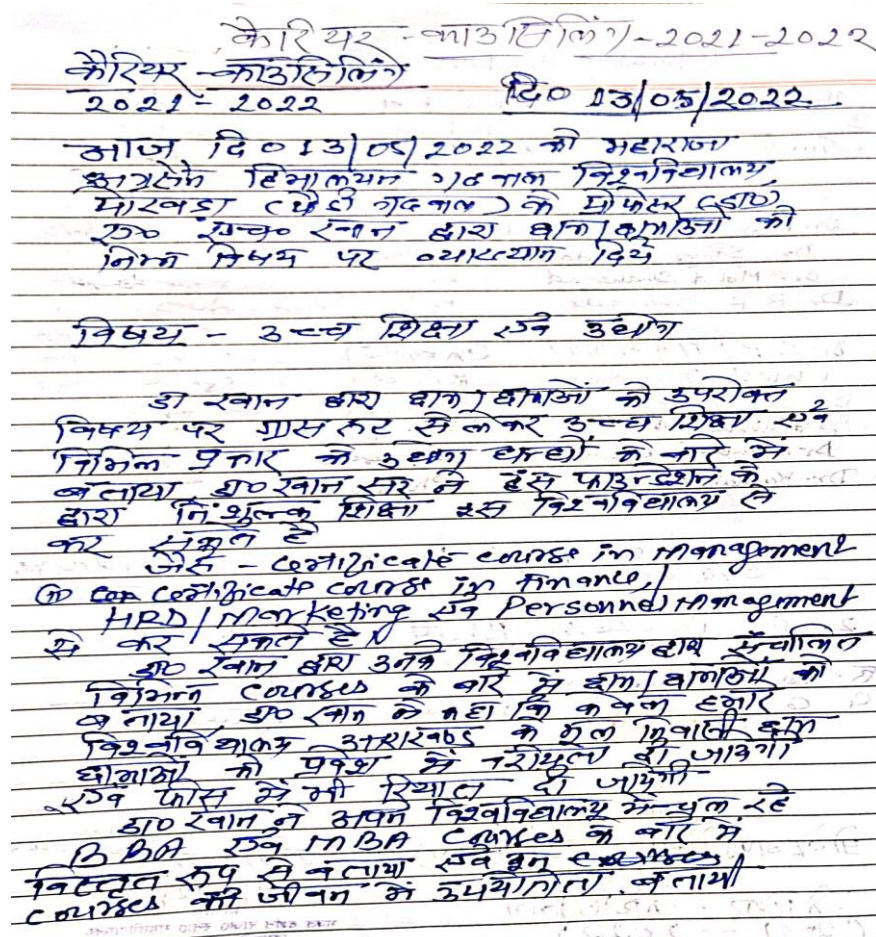 कैरियर - काउंसिलिंग - 2021-2022
कैरियर - काउंसिलिंग
2021 - 2022 दि० 13/05/2022.
आज दि० 13/05/2022 को महाराजा
अग्रसेन हिमालयन गढवाल विश्वविद्यालय
पोखडा (पौडी गढवाल) के प्रोफेसर (डा०)
एम० खान द्वारा छात्र/छात्राओं को
निम्न विषय पर व्याख्यान दिये
विषय - उच्च शिक्षा एवं उद्योग
डा खान द्वारा छात्र/छात्राओं को उपरोक्त
विषय पर ग्रास रूट से लेकर उच्च शिक्षा एवं
विभिन्न प्रकार के उद्योग धन्धों के बारे में
बताया डा० खान सर ने हंस फाउन्डेशन के
द्वारा निःशुल्क शिक्षा इस विश्वविद्यालय से
कर सकते है
जैसे - Certificate course in Management
certificate course in Finance,
HRD/Marketing एवं Personnel Management
से कर सकते है।
डा० खान द्वारा उनके विश्वविद्यालय द्वारा संचालित
विभिन्न courses के बारे में छात्र/छात्राओं को
बताया डा० खान ने कहा कि केवल हमारे
विश्वविद्यालय उत्तराखण्ड के मूल निवासी छात्र
छात्राओं को प्रवेश में वरीयता दी जायेगी
एवं फीस में भी रियायत दी जायेगी
डा० खान ने अपने विश्वविद्यालय में चल रहे
BBA एवं MBA Courses के बारे में
विस्तृत रूप से बताया एवं इन
courses की जीवन में उपयोगिता बतायी